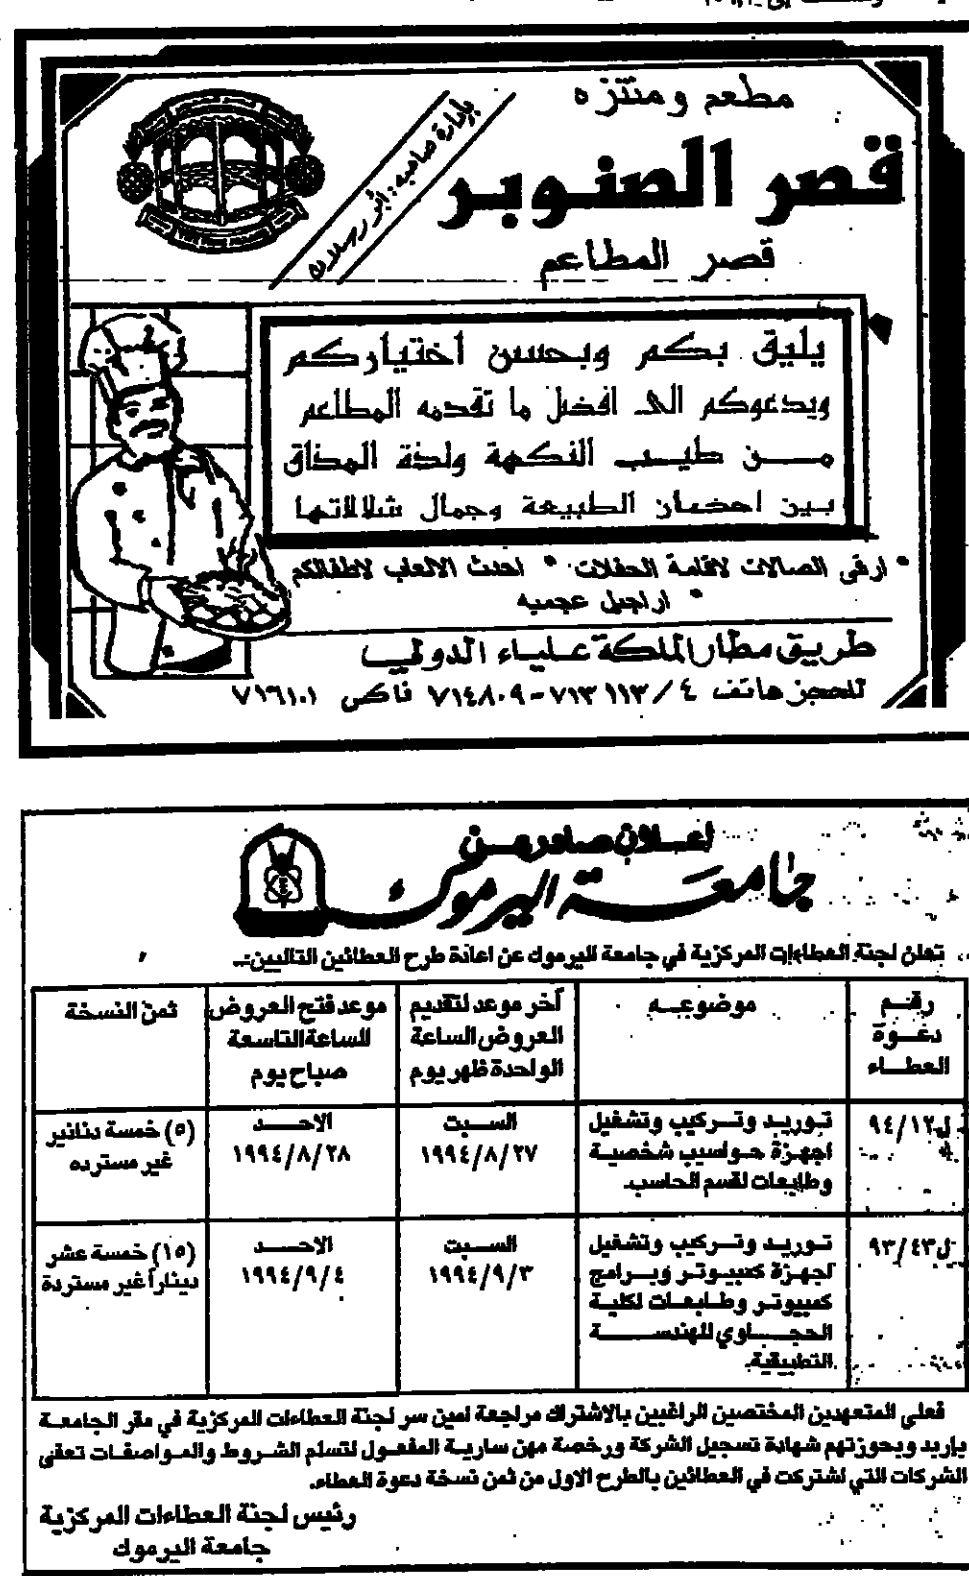 مطعم ومنتزه
قصر الصنوبر
قصر المطاعم
بإدارة صاحبه :
يليق بكم وبحسن اختياركم
ويدعوكم الى افضل ما تقدمه المطاعم
مـــن طيـــب النكهة ولذة المذاق
بين احضان الطبيعة وجمال شلالاتها
* ارقى الصالات لاقامة الحفلات * احدث الالعاب لاطفالكم
* اراجيل عجميه
طريق مطار الملكة عليـاء الدولي
للحجز هاتف ٤ / ٧١٣١١٣ - ٧١٤٨٠٩ فاكس ٧١٦١٠١
اعـــلان صادر مــن
جامعـة اليرموك
تعلن لجنة العطاءات المركزية في جامعة اليرموك عن اعادة طرح العطائين التاليين:ـ
رقــم دعــوة العطــاء
موضوعــه
آخر موعد لتقديم العروض الساعة الواحدة ظهر يوم
موعد فتح العروض الساعة التاسعة صباح يوم
ثمن النسخة
ل ٩٤/١٢
توريد وتركيب وتشغيل
اجهزة حواسيب شخصية
وطابعات لقسم الحاسب.
السـبت
١٩٩٤/٨/٢٧
الاحــد
١٩٩٤/٨/٢٨
(٥) خمسة دنانير
غير مسترده
ل ٩٣/٤٣
توريد وتركيب وتشغيل
اجهزة كمبيوتر وبرامج
كمبيوتر وطابعات لكلية
الحجـاوي للهندســة
التطبيقية.
السـبت
١٩٩٤/٩/٣
الاحــد
١٩٩٤/٩/٤
(١٥) خمسة عشر
ديناراً غير مستردة
فعلى المتعهدين المختصين الراغبين بالاشتراك مراجعة امين سر لجنة العطاءات المركزية في مقر الجامعـة
بإربد وبحوزتهم شهادة تسجيل الشركة ورخصة مهن سارية المفعول لتسلم الشروط والمـواصفـات تعفى
الشركات التي اشتركت في العطائين بالطرح الاول من ثمن نسخة دعوة العطاء.
رئيس لجنة العطاءات المركزية
جامعة اليرموك